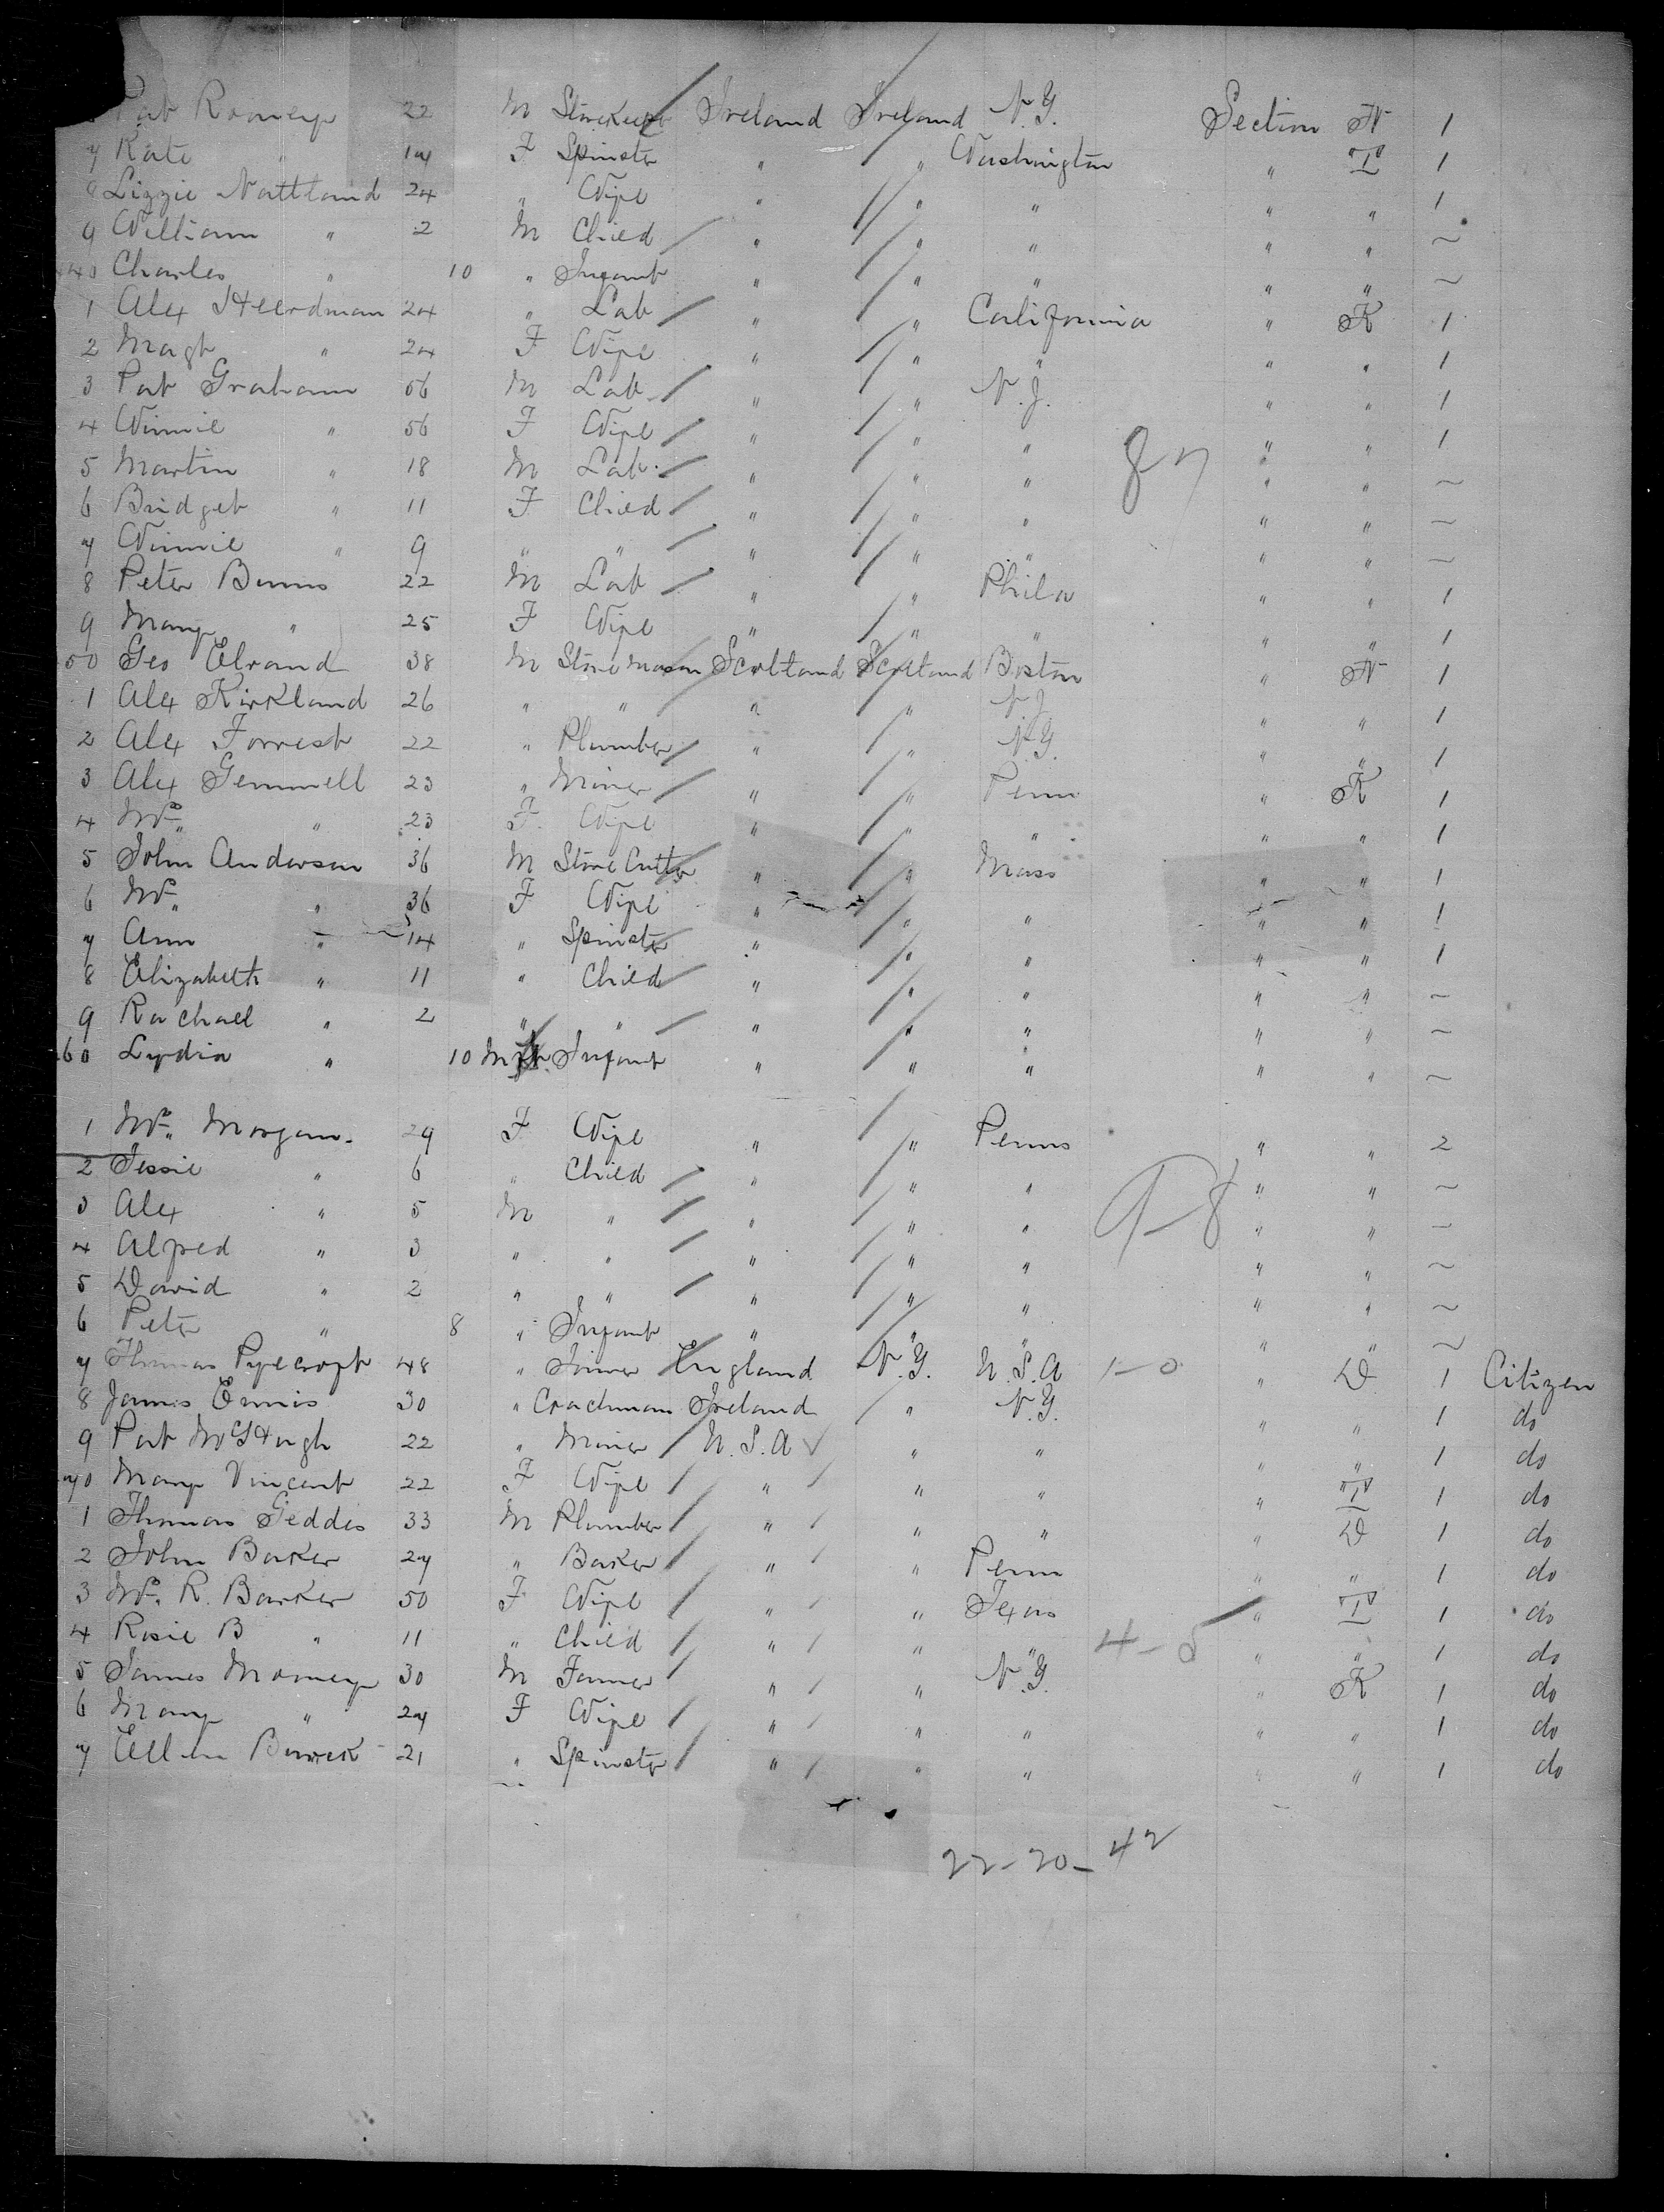 Pat Rooney 22 M Storekeepr Ireland Ireland N.Y. Section N 1
7 Kate " 17 F Spinster " " Washington " I 1
8 Lizzie Nattland 24 " Wife " " " " " 1
9 William " 2 M Child " " " " " ~
440 Charles " 10 " Infant " " " " " ~
1 Alex Heerdman 24 " Lab " " California " K 1
2 Magt " 24 F Wife " " " " " 1
3 Pat Graham 56 M Lab " " N.J. " " 1
4 Winnie " 56 F Wife " " " " " 1
8 7
5 Martin " 18 M Lab. " " " " " ~
6 Bridget " 11 F Child " " " " " ~
7 Winnie " 9 " " " " " " " ~
8 Peter Burns 22 M Lab " " Phila " " 1
9 Mary " 25 F Wife " " " " " 1
50 Geo Elrand 38 M Stone Mason Scotland Scotland Boston " N 1
1 Alex Kirkland 26 " " " " N.J. " " 1
2 Alex Forrest 22 " Plumber " " N.Y. " " 1
3 Alex Gemmell 23 " Miner " " Penn " K 1
4 Mrs " 23 F. Wife " " " " " 1
5 John Anderson 36 M Stone Cutter " " Mass " " 1
6 Mrs " 36 F Wife " " " " " 1
7 Ann " 14 " Spinster " " " " " 1
8 Elizabeth " 11 " Child " " " " " ~
9 Rachael " 2 " " " " " " " ~
60 Lydia " 10 Infant " " " " " ~
1 Mrs Morgan. 29 F Wife " " Penns " " 2
2 Jessie " 6 " Child " " " " " ~
9-8
3 Alex " 5 M " " " " " " ~
4 Alfred " 3 " " " " " " " ~
5 David " 2 " " " " " " " ~
6 Peter " 8 " Infant " " " " " ~
7 Thomas Pyecroft 48 " Joiner England N.Y. U.S.A 1-0 " D 1 Citizen
8 James Ennis 30 " Coachman Ireland " N.Y. " " 1 do
9 Pat McHugh 22 " Miner U.S.A " " " " 1 do
70 Mary Vincent 22 F Wife " " " " I 1 do
1 Thomas Geddes 33 M Plumber " " " " D 1 do
2 John Baker 27 " Baker " " Penn " " 1 do
3 Mrs. R. Barker 50 F Wife " " Texas " I 1 do
4 Rosie B " 11 " Child " " " 4-5 " " 1 do
5 James Mooney 30 M Farmer " " N.Y. " K 1 do
6 Mary " 27 F Wife " " " " " 1 do
7 Ellen 21 " Spinster " " " " " 1 do
22-20-42